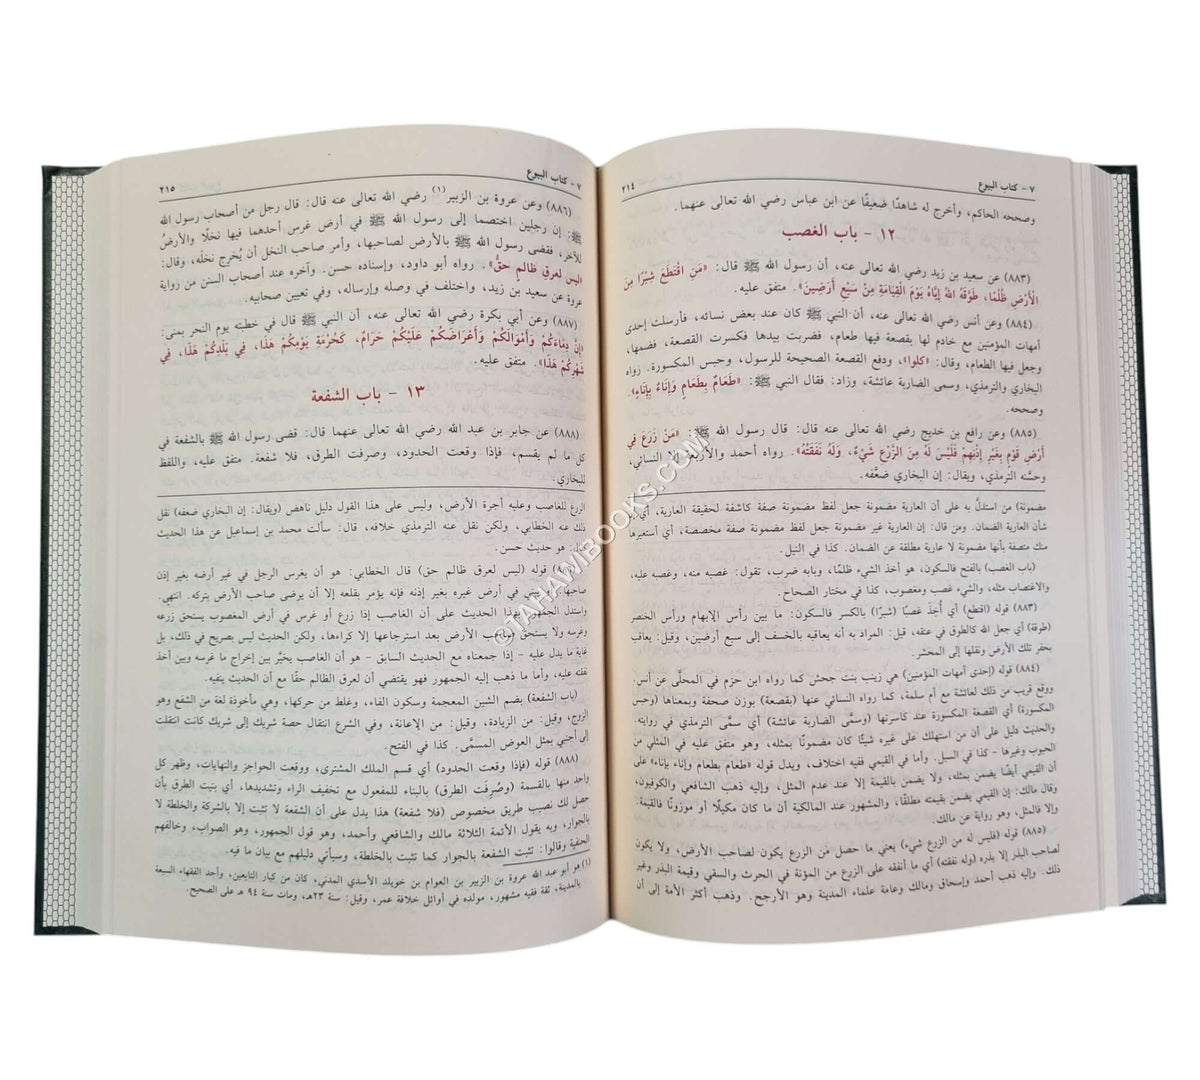 ٧ - كتاب البيوع ٢١٤
وصححه الحاكم، وأخرج له شاهدًا ضعيفًا عن ابن عباس رضي الله تعالى عنهما.
١٢ - باب الغصب
(٨٨٣) عن سعيد بن زيد رضي الله تعالى عنه، أن رسول الله ﷺ قال: «مَنِ اقْتَطَعَ شِبْرًا مِنَ
الْأَرْضِ ظُلْمًا، طَوَّقَهُ اللهُ إِيَّاهُ يَوْمَ الْقِيَامَةِ مِنْ سَبْعِ أَرَضِينَ». متفق عليه.
(٨٨٤) وعن أنس رضي الله تعالى عنه، أن النبي ﷺ كان عند بعض نسائه، فأرسلت إحدى
أمهات المؤمنين مع خادم لها بقصعة فيها طعام، فضربت بيدها فكسرت القصعة، فضمها،
وجعل فيها الطعام، وقال: «كلوا»، ودفع القصعة الصحيحة للرسول، وحبس المكسورة. رواه
البخاري والترمذي، وسمى الضاربة عائشة، وزاد: فقال النبي ﷺ: «طَعَامٌ بِطَعَامٍ وَإِنَاءٌ بِإِنَاءٍ».
وصححه.
(٨٨٥) وعن رافع بن خديج رضي الله تعالى عنه قال: قال رسول الله ﷺ: «مَنْ زَرَعَ فِي
أَرْضِ قَوْمٍ بِغَيْرِ إِذْنِهِمْ فَلَيْسَ لَهُ مِنَ الزَّرْعِ شَيْءٌ، وَلَهُ نَفَقَتُهُ». رواه أحمد والأربعة إلا النسائي،
وحسَّنه الترمذي، ويقال: إن البخاري ضعَّفه.
مضمونة) من استدلَّ به على أن العارية مضمونة جعل لفظ مضمونة صفة كاشفة لحقيقة العارية، أي إن
شأن العارية الضمان. ومن قال: إن العارية غير مضمونة جعل لفظ مضمونة صفة مخصصة، أي أستعيرها
منك متصفة بأنها مضمونة لا عارية مطلقة عن الضمان. كذا في النيل.
(باب الغصب) بالفتح فالسكون، هو أخذ الشيء ظلمًا، وبابه ضرب، تقول: غصبه منه، وغصبه عليه،
والاغتصاب مثله، والشيء غصب ومغصوب، كذا في مختار الصحاح.
(٨٨٣) قوله (اقتطع) أي أُخذ غصبًا (شبرًا) بالكسر فالسكون: ما بين رأس الإبهام ورأس الخنصر
(طوقة) أي جعل الله كالطوق في عنقه، قيل: المراد به أنه يعاقبه بالخسف إلى سبع أرضين، وقيل: يعاقب
بحفر تلك الأرض ونقلها إلى المحشر.
(٨٨٤) قوله (إحدى أمهات المؤمنين) هي زينب بنت جحش كما رواه ابن حزم في المحلَّى عن أنس:
ووقع قريب من ذلك لعائشة مع أم سلمة، كما رواه النسائي عنها (بقصعة) بوزن صحفة وبمعناها (وحبس
المكسورة) أي القصعة المكسورة عند كاسرتها (وسمَّى الضاربة عائشة) أي سمَّى الترمذي في روايته.
والحديث دليل على أن من استهلك على غيره شيئًا كان مضمونًا بمثله، وهو متفق عليه في المثلي من
الحبوب وغيرها - كذا في السبل. وأما في القيمي ففيه اختلاف، ويدل قوله «طعام بطعام وإناء بإناء» على
أن القيمي أيضًا يضمن بمثله، ولا يضمن بالقيمة إلا عند عدم المثل، وإليه ذهب الشافعي والكوفيون،
وقال مالك: إن القيمي يضمن بقيمته مطلقًا، والمشهور عند المالكية أن ما كان مكيلًا أو موزونًا فالقيمة،
وإلا فالمثل، وهو رواية عن مالك.
(٨٨٥) قوله (فليس له من الزرع شيء) يعني ما حصل من الزرع يكون لصاحب الأرض، ولا يكون
لصاحب البذر إلا بذره (وله نفقته) أي ما أنفقه على الزرع من المؤنة في الحرث والسقي وقيمة البذر وغير
ذلك. وإليه ذهب أحمد وإسحاق ومالك وعامة علماء المدينة وهو الأرجح. وذهب أكثر الأمة إلى أن
٧ - كتاب البيوع ٢١٥
(٨٨٦) وعن عروة بن الزبير (١) رضي الله تعالى عنه قال: قال رجل من أصحاب رسول الله
ﷺ: إن رجلين اختصما إلى رسول الله ﷺ في أرض غرس أحدهما فيها نخلًا والأرضُ
للآخر، فقضى رسول الله ﷺ بالأرض لصاحبها، وأمر صاحب النخل أن يُخرج نخله، وقال:
«ليس لعرقِ ظالمٍ حقٌّ». رواه أبو داود، وإسناده حسن. وآخره عند أصحاب السنن من رواية
عروة عن سعيد بن زيد، واختلف في وصله وإرساله، وفي تعيين صحابيه.
(٨٨٧) وعن أبي بكرة رضي الله تعالى عنه، أن النبي ﷺ قال في خطبته يوم النحر بمنى:
«إِنَّ دِمَاءَكُمْ وَأَمْوَالَكُمْ وَأَعْرَاضَكُمْ عَلَيْكُمْ حَرَامٌ، كَحُرْمَةِ يَوْمِكُمْ هَذَا، فِي بَلَدِكُمْ هَذَا، فِي
شَهْرِكُمْ هَذَا». متفق عليه.
١٣ - باب الشفعة
(٨٨٨) عن جابر بن عبد الله رضي الله تعالى عنهما قال: قضى رسول الله ﷺ بالشفعة في
كل ما لم يقسم، فإذا وقعت الحدود، وصرفت الطرق، فلا شفعة. متفق عليه، واللفظ
للبخاري.
الزرع للغاصب وعليه أجرة الأرض، وليس على هذا القول دليل ناهض (ويقال: إن البخاري ضعفه) نقل
ذلك عنه الخطابي، ولكن نقل عنه الترمذي خلافه، قال: سألت محمد بن إسماعيل عن هذا الحديث
فقال: هو حديث حسن.
قوله (ليس لعرق ظالم حق) قال الخطابي: هو أن يغرس الرجل في غير أرضه بغير إذن
صاحبها في أرض غيره بغير إذنه فإنه يؤمر بقلعه إلا أن يرضى صاحب الأرض بتركه. انتهى.
واستدل الجمهور بهذا الحديث على أن الغاصب إذا زرع أو غرس في أرض المغصوب يستحق زرعه
وغرسه ولا يستحق صاحب الأرض بعد استرجاعها إلا كراءها، ولكن الحديث ليس بصريح في ذلك، بل
غاية ما يدل عليه - إذا جمعناه مع الحديث السابق - هو أن الغاصب يخيَّر بين إخراج ما غرسه وبين أخذ
نفقته عليه، وأما ما ذهب إليه الجمهور فهو يقتضي أن لعرق الظالم حقًا مع أن الحديث ينفيه.
(باب الشفعة) بضم الشين المعجمة وسكون الفاء، وغلط من حركها، وهي مأخوذة لغة من الشفع وهو
الزوج، وقيل: من الزيادة، وقيل: من الإعانة، وفي الشرع انتقال حصة شريك إلى شريك كانت انتقلت
إلى أجنبي بمثل العوض المسمَّى. كذا في الفتح.
(٨٨٨) قوله (فإذا وقعت الحدود) أي قسم الملك المشترى، ووقعت الحواجز والنهايات، وظهر كل
واحد منها بالقسمة (وصُرفت الطرق) بالبناء للمفعول مع تخفيف الراء وتشديدها، أي بنيت الطرق بأن
حصل لك نصيب طريق مخصوص (فلا شفعة) هذا يدل على أن الشفعة لا تثبت إلا بالشركة والخلطة لا
بالجوار، وبه يقول الأئمة الثلاثة مالك والشافعي وأحمد، وهو قول الجمهور، وهو الصواب، وخالفهم
الحنفية وقالوا: تثبت الشفعة بالجوار كما تثبت بالخلطة، وسيأتي دليلهم مع بيان ما فيه.
(١) هو أبو عبد الله عروة بن الزبير بن العوام بن خويلد الأسدي المدني، كان من كبار التابعين، وأحد الفقهاء السبعة
بالمدينة، ثقة فقيه مشهور، مولده في أوائل خلافة عمر، وقيل: سنة ٢٣هـ، ومات سنة ٩٤ هـ على الصحيح.
©TAHAWIBOOKS.COM